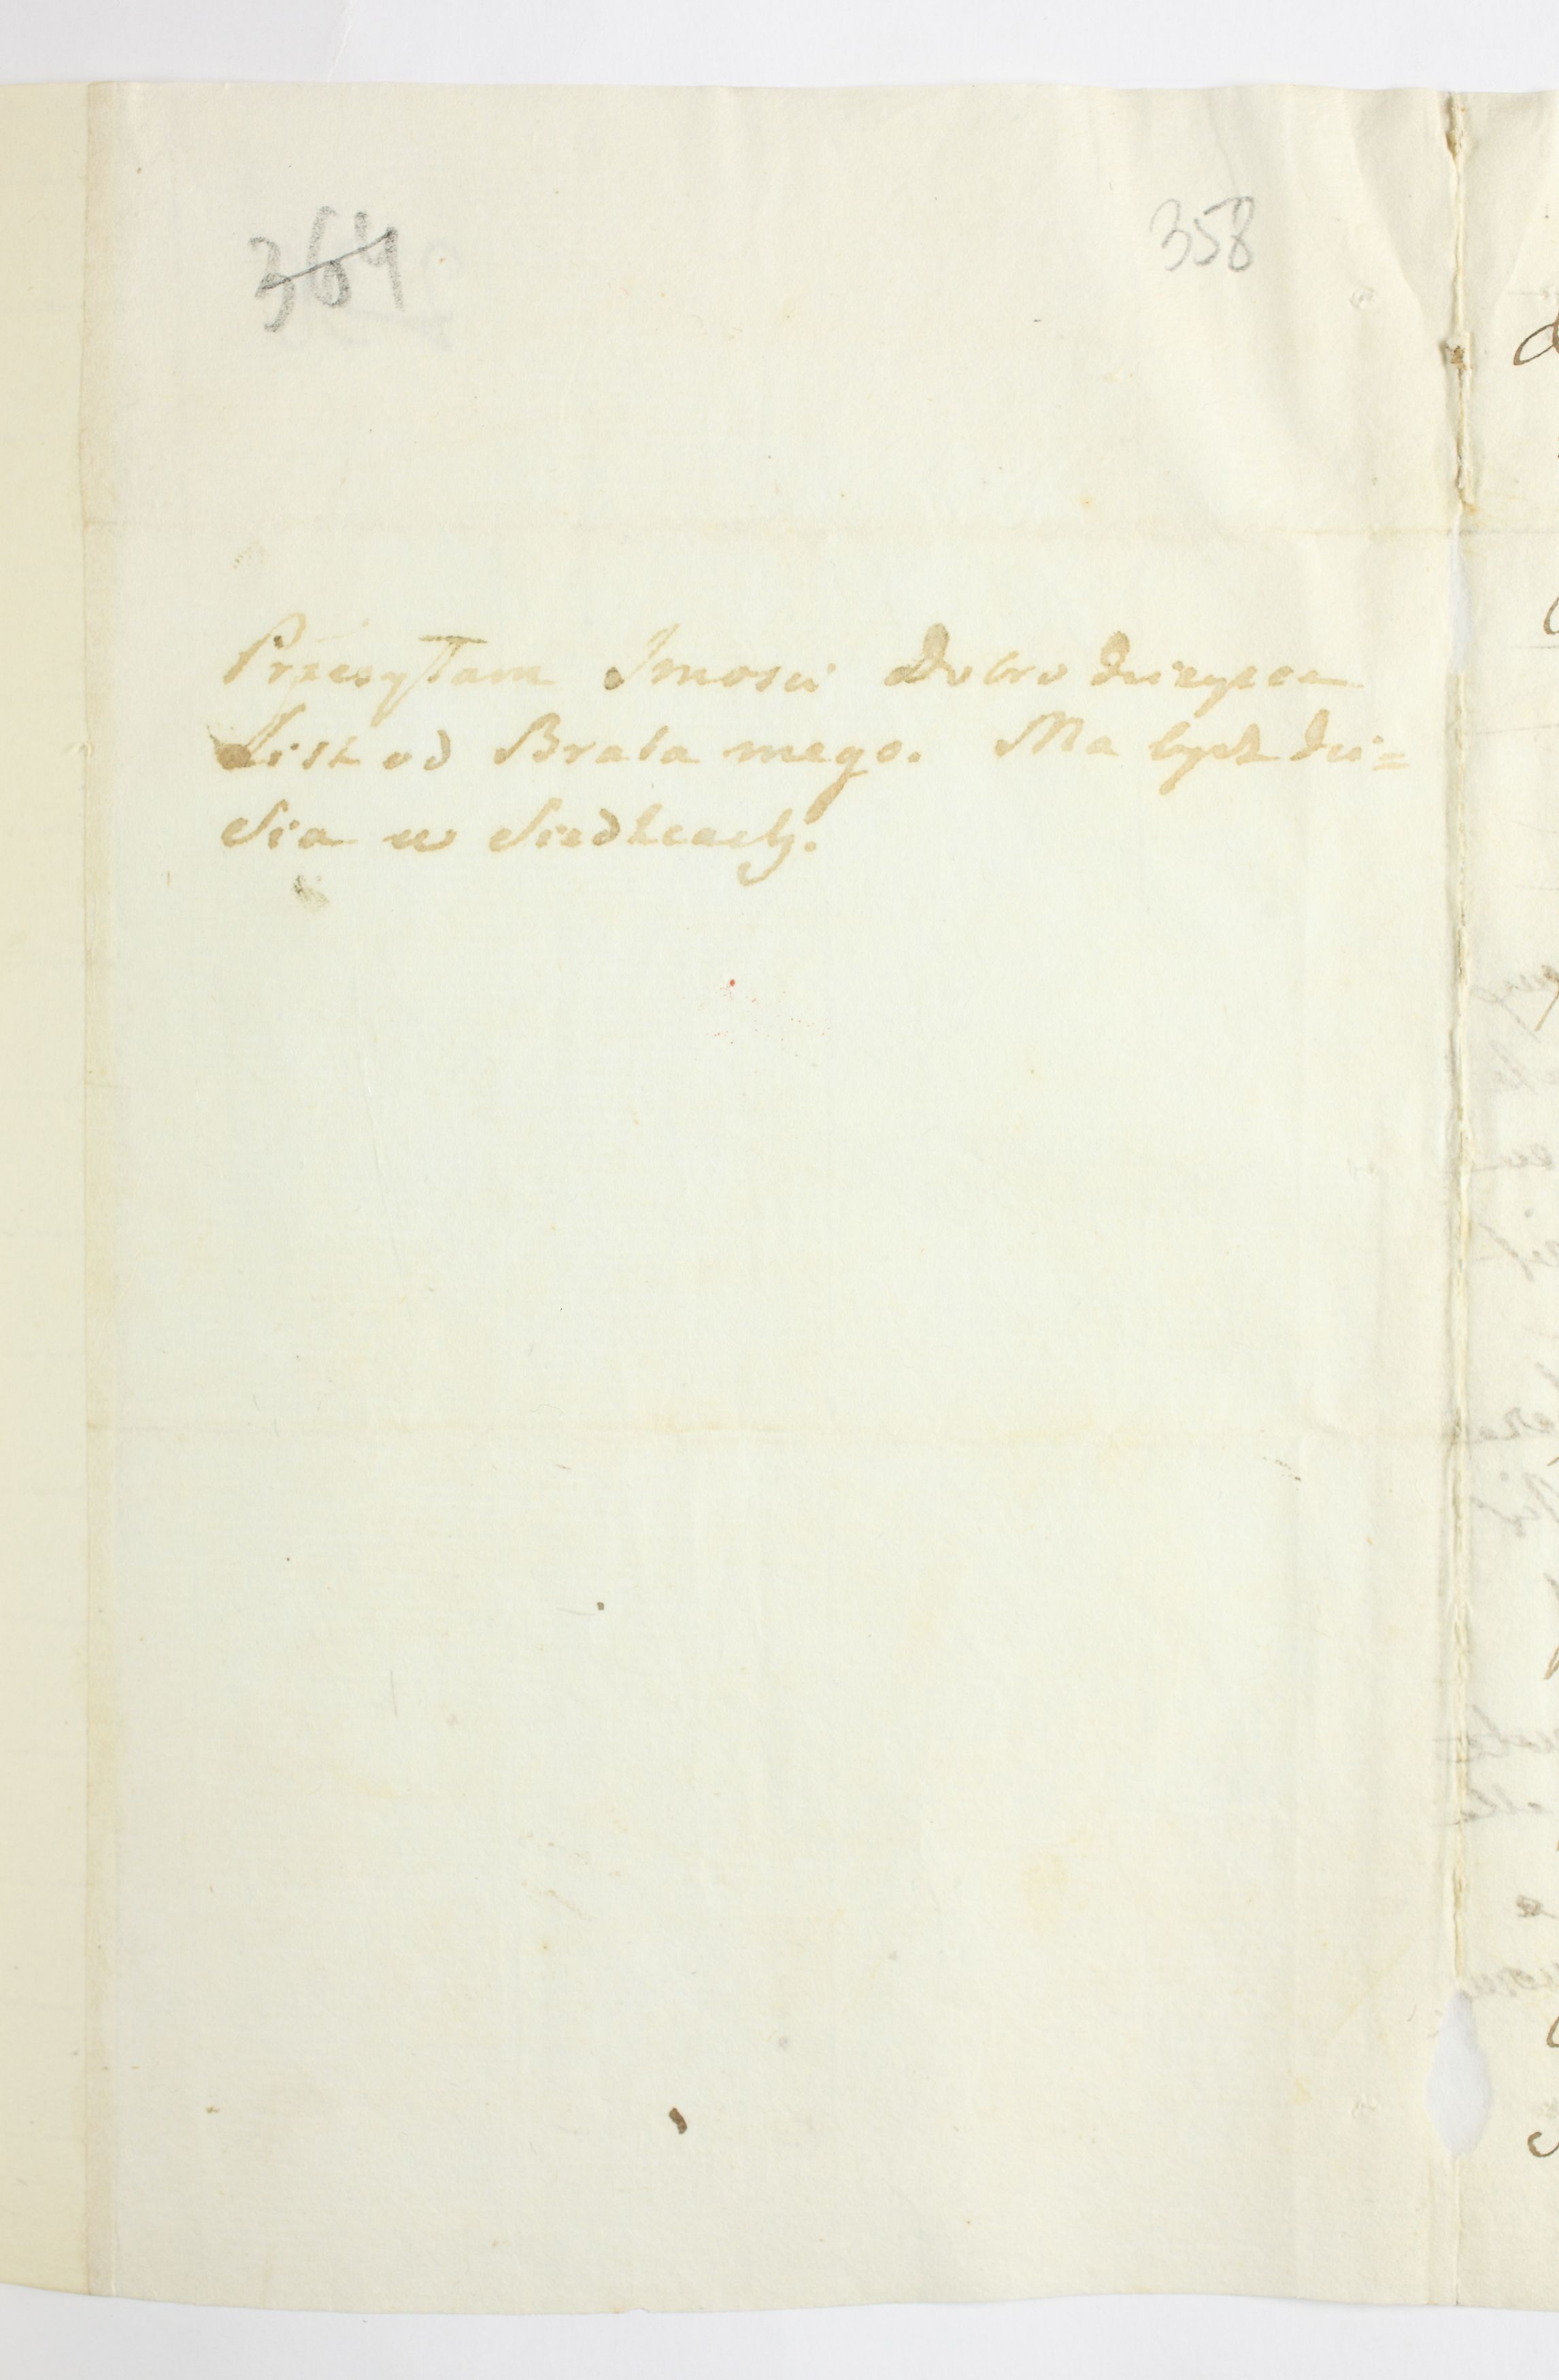 364 358
Przesyłam Imosci Dobrodzieyce
List od Brata mego. Ma bydz dzi=
sia w Siedlcach.